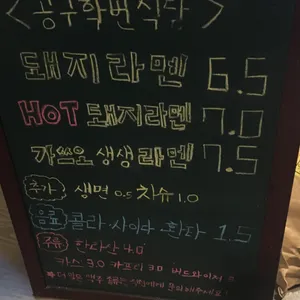 <공구학번식당>
돼지라멘 6.5
HOT 돼지라멘 7.0
가쓰오 생생라멘 7.5
추가 생면 0.5 차슈 1.0
음료 콜라·사이다 환타 1.5
주류 한라산 4.0
카스 3.0 카프리 3.0 버드와이저